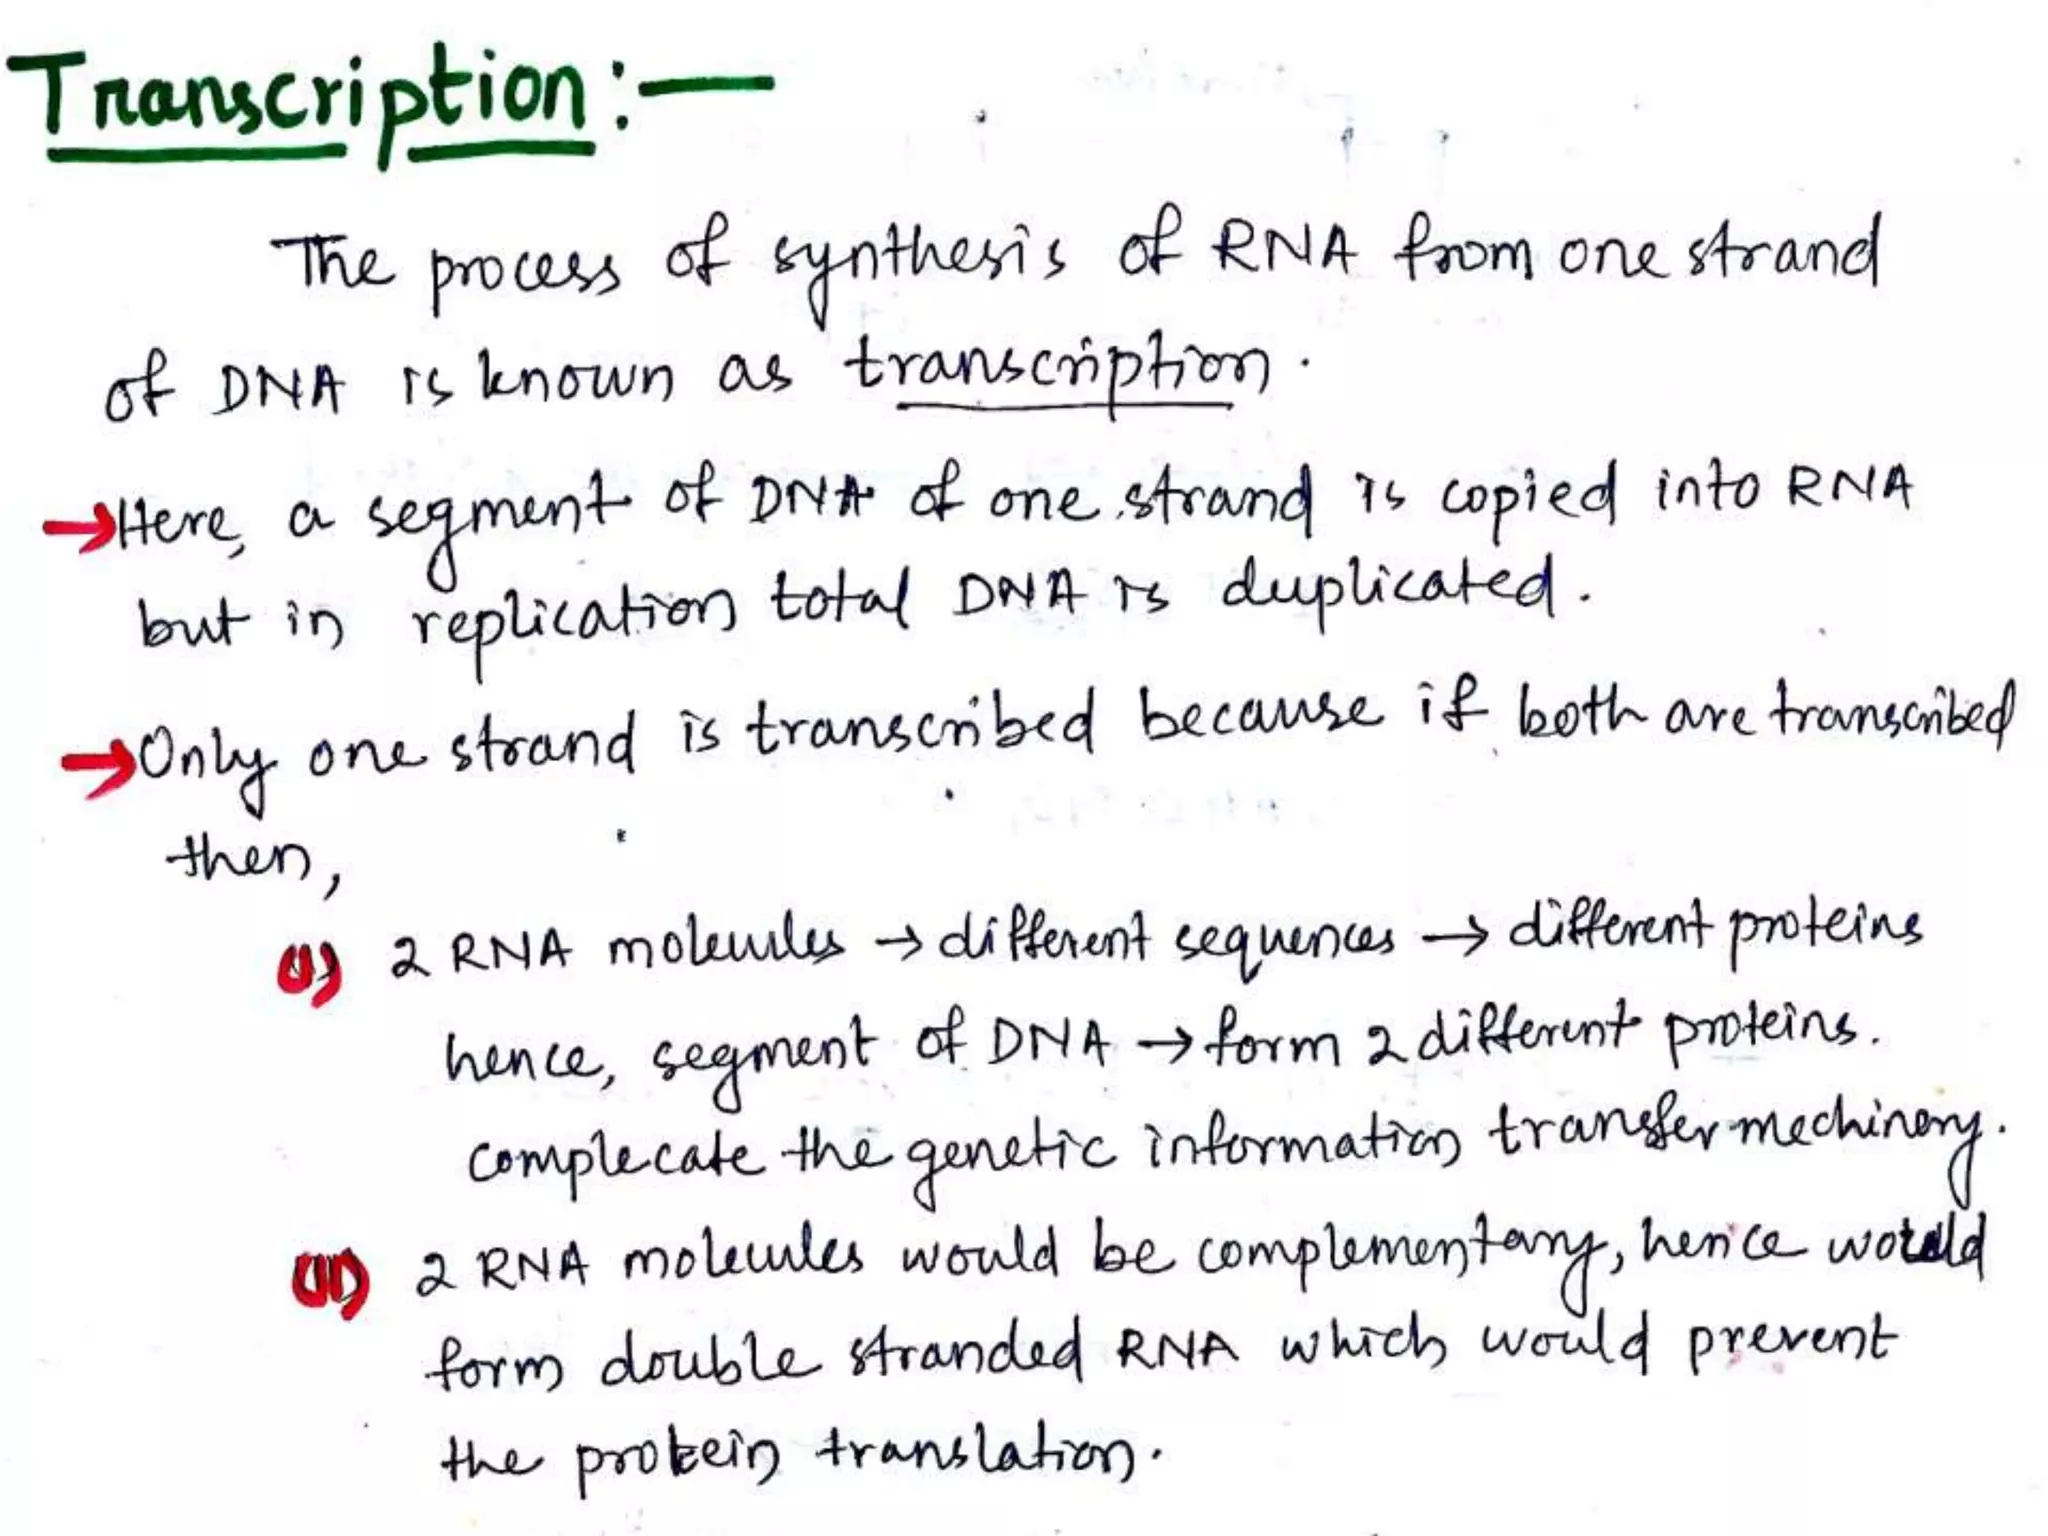 Transcription:—
The process of synthesis of RNA from one strand
of DNA is known as transcription.
→Here, a segment of DNA of one strand is copied into RNA
but in replication total DNA is duplicated.
→Only one strand is transcribed because if both are transcribed
then,
(I) 2 RNA molecules → different sequences → different proteins
hence, segment of DNA → form 2 different proteins.
complecate the genetic information transfer mechinery.
(II) 2 RNA molecules would be complementary, hence would
form double stranded RNA which would prevent
the protein translation.